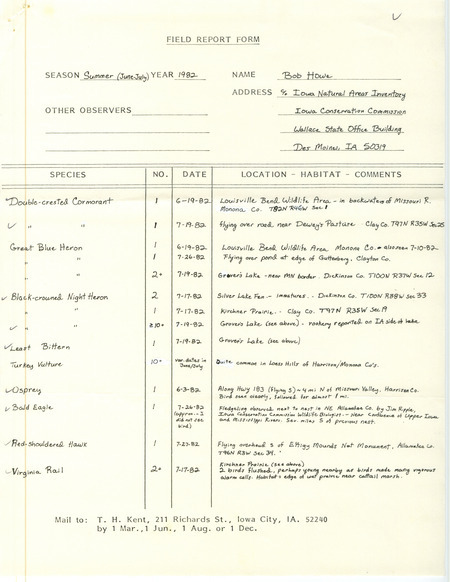 FIELD REPORT FORM
SEASON Summer (June-July) YEAR 1982 NAME Bob Howe
ADDRESS % Iowa Natural Areas Inventory
OTHER OBSERVERS Iowa Conservation Commission
Wallace State Office Building
Des Moines, IA 50319
SPECIES NO. DATE LOCATION - HABITAT - COMMENTS
Double-crested Cormorant 1 6-19-82 Louisville Bend Wildlife Area - in backwaters of Missouri R.
Monona Co. T82N R46W Sec. 1
✓ " " 1 7-19-82 flying over road near Dewey's Pasture Clay Co. T97N R35W Sec 25
Great Blue Heron 1 6-19-82 Louisville Bend Wildlife Area Monona Co. also seen 7-10-82
1 7-26-82 Flying over pond at edge of Guttenberg, Clayton Co.
" " 2+ 7-19-82 Grover's Lake - near MN border. Dickinson Co. T100N R37W Sec. 12
✓ Black-crowned Night Heron 2 7-17-82 Silver Lake Fen - immatures. Dickinson Co. T100N R38W Sec 33
✓ " 1 7-17-82 Kirchner Prairie. - Clay Co. T97N R35W Sec 19
✓ " " ≥10+ 7-19-82 Grover's Lake (see above) - rookery reported on IA side of lake
✓ Least Bittern 1 7-19-82 Grover's Lake (see above)
Turkey Vulture 10+ var. dates in Quite common in Loess Hills of Harrison/Monona Co's.
June/July
✓ Osprey 1 6-3-82 Along Hwy 183 (flying S) ~ 4 mi N of Missouri Valley, Harrison Co.
Bird seen clearly, followed for almost 1 mi.
✓ Bald Eagle 1 7-26-82 Fledgling observed next to nest in NE Allamakee Co. by Jim Ripple,
(approx. - I Iowa Conservation Commission Wildlife Biologist - Near confluence of Upper Iowa
did not see and Mississippi Rivers. Sev. miles S of previous nest.
bird)
✓ Red-shouldered Hawk 1 7-23-82 Flying overhead S of Effigy Mounds Nat Monument, Allamakee Co.
T96N R3W Sec 34.
✓ Virginia Rail 2+ 7-17-82 Kirchner Prairie (see above)
2 birds flushed, perhaps young nearby as birds made many vigorous
alarm calls. Habitat = edge of wet prairie near cattail marsh.
Mail to: T. H. Kent, 211 Richards St., Iowa City, IA. 52240
by 1 Mar., 1 Jun., 1 Aug. or 1 Dec.